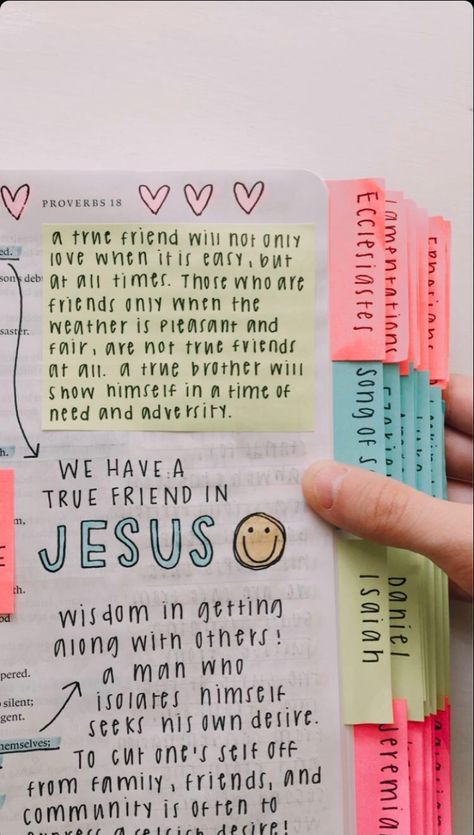 PROVERBS 18
a true friend will not only
love when it is easy, but
at all times. Those who are
friends only when the
weather is pleasant and
fair, are not true friends
at all. a true brother will
show himself in a time of
need and adversity.
WE HAVE A
TRUE FRIEND IN
JESUS
wisdom in getting
along with others!
a man who
isolates himself
seeks his own desire.
To cut one's self off
from family, friends, and
community is often to
express a selfish desire!
ed.
son's deb
saster.
h.
m,
th.
od
pered.
silent;
gent.
hemselves;
Ecclesiastes
Lamentations
Ephesians
Song of S
Ezekiel
Isaiah
Daniel
Jeremia